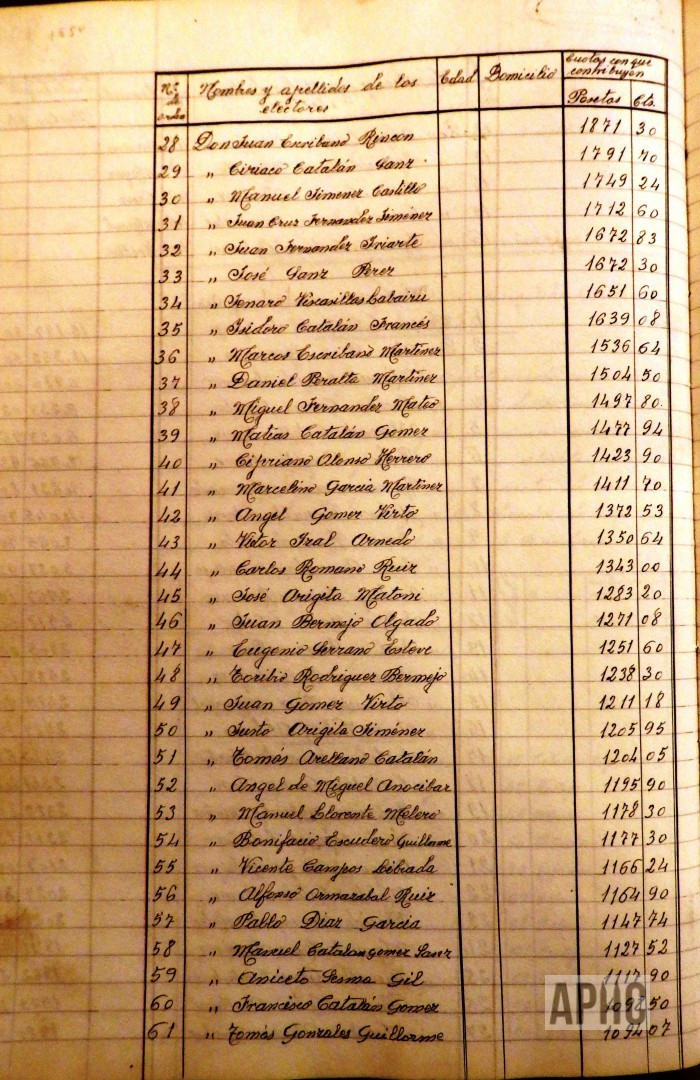 Nº de orden Nombres y apellidos de los electores Edad Domicilio Cuotas con que contribuyen Pesetas Cts.
28 Don Juan Escribano Rincon 1871 30
29 " Ciriaco Catalán Sanz 1791 70
30 " Manuel Jimenez Castillo 1749 24
31 " Juan Cruz Fernandez Jiménez 1712 60
32 " Juan Fernandez Iriarte 1672 83
33 " José Sanz Perez 1672 30
34 " Jenaro Viscasillas Labairu 1651 60
35 " Isidoro Catalán Francés 1639 08
36 " Marcos Escribano Martinez 1536 64
37 " Daniel Peralta Martinez 1504 50
38 " Miguel Fernandez Mateo 1497 80
39 " Matias Catalán Gomez 1477 94
40 " Cipriano Alonso Herrero 1423 90
41 " Marcelino Garcia Martinez 1411 70
42 " Angel Gomez Virto 1372 53
43 " Victor Iral Arnedo 1350 64
44 " Carlos Romano Ruiz 1343 00
45 " José Arigita Matoni 1283 20
46 " Juan Bermejo Olgado 1271 08
47 " Eugenio Serrano Esteve 1251 60
48 " Toribio Rodriguez Bermejo 1238 30
49 " Juan Gomez Virto 1211 18
50 " Justo Arigita Jiménez 1205 95
51 " Tomás Arellano Catalán 1204 05
52 " Angel de Miguel Anocibar 1195 90
53 " Manuel Llorente Melero 1178 30
54 " Bonifacio Escudero Guillorme 1177 30
55 " Vicente Campos Librada 1166 24
56 " Alfonso Ormazabal Ruiz 1164 90
57 " Pablo Diaz Garcia 1147 74
58 " Manuel Catalan gomez Sanz 1127 52
59 " Aniceto Sesma Gil 1117 90
60 " Francisco Catalán Gomez 50
61 " Tomás Gonzales Guillorme 1094 07
APHC